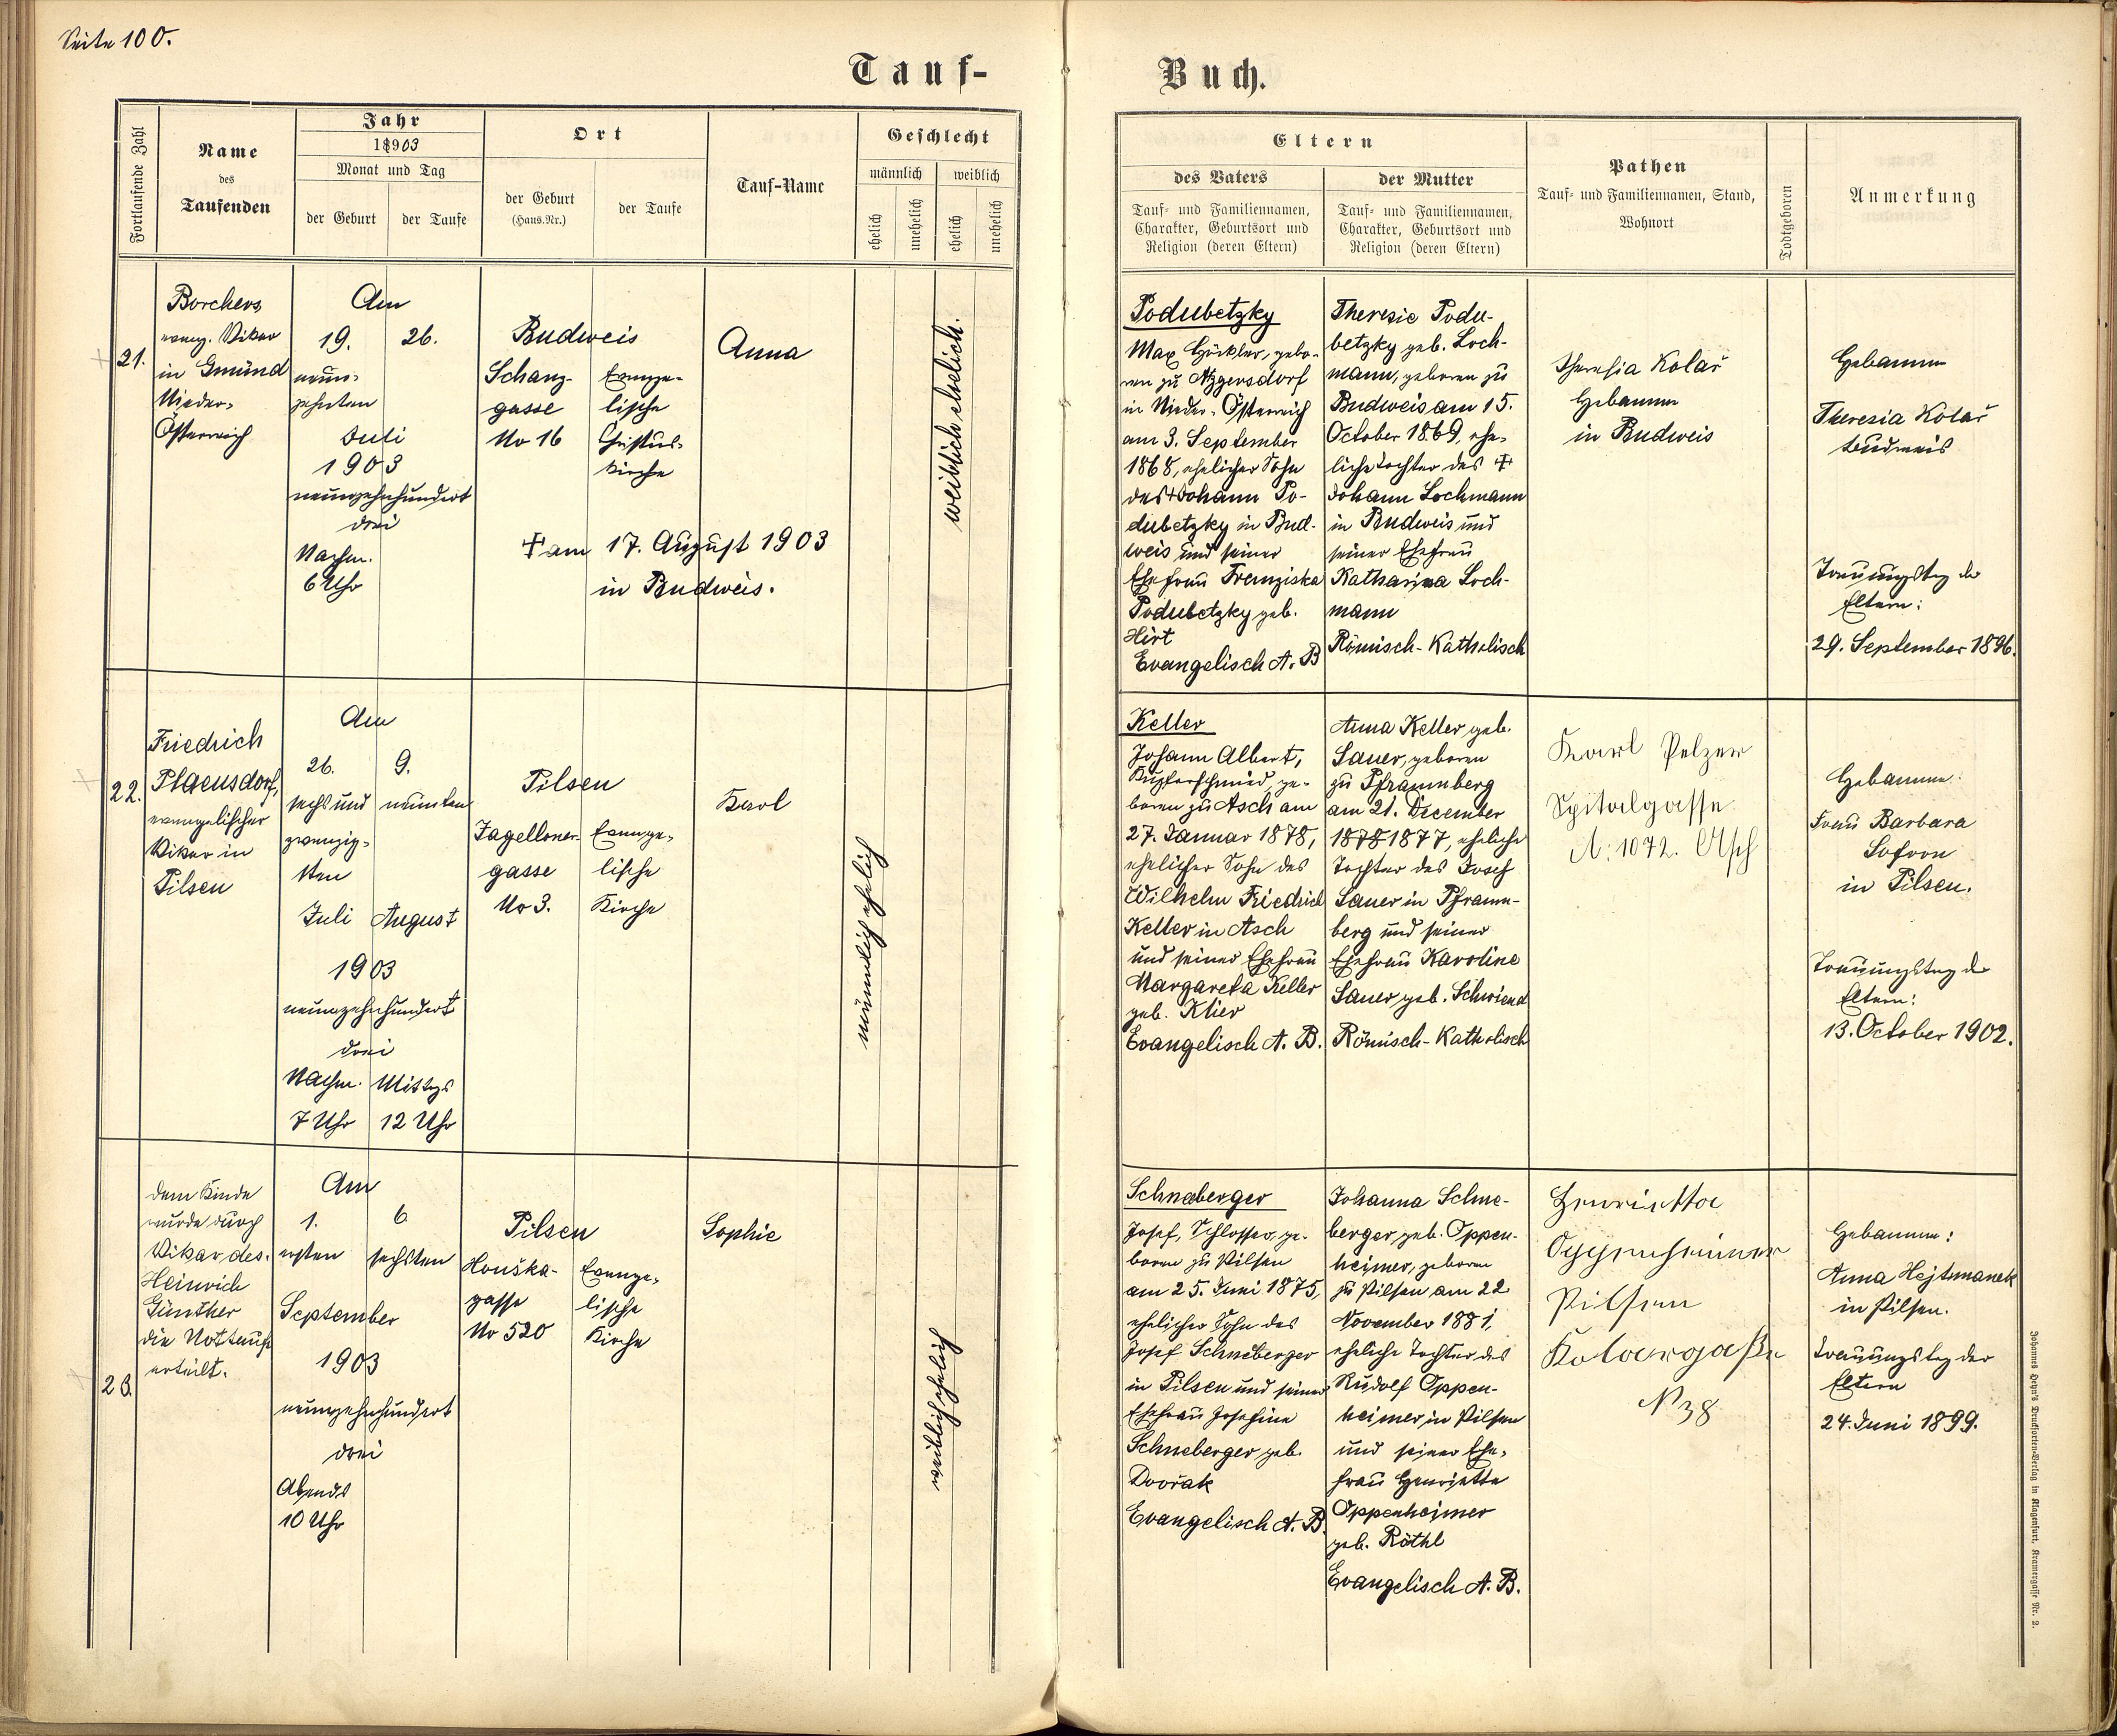 Seite 100.
Tauf-
Buch.
Fortlaufende Zahl
Name
des
Taufenden
Jahr
18903
Monat und Tag
der Geburt
der Taufe
Ort
der Geburt
(Haus.Nr.)
der Taufe
Tauf-Name
Geschlecht
männlich
weiblich
ehelich
unehelich
ehelich
unehelich
Eltern
des Vaters
Tauf- und Familiennamen,
Charakter, Geburtsort und
Religion (deren Eltern)
der Mutter
Tauf- und Familiennamen,
Charakter, Geburtsort und
Religion (deren Eltern)
Pathen
Tauf- und Familiennamen, Stand,
Wohnort
Todtgeboren
Anmerkung
21.
Borchers,
evang. Vikar
in Gmünd
Nieder-
Österreich
Am
19. 26.
neun-
zehnten
Juli
1903
neunzehnhundert
drei
Nachm.
6 Uhr
Budweis
Schanz-
gasse
No 16
Evange-
lische
Christus-
kirche
Anna
† am 17. August 1903
in Budweis.
weiblich ehelich.
Podubetzky
Max Göckler, gebo-
ren zu Atzgersdorf
in Nieder-Österreich
am 3. September
1868, ehelicher Sohn
des † Johann Po-
dubetzky in Bud-
weis und seiner
Ehefrau Franziska
Podubetzky geb.
Hirt
Evangelisch A. B
Theresie Podu-
betzky geb. Loch-
mann, geboren zu
Budweis am 15.
October 1869, ehe-
liche Tochter des †
Johann Lochmann
in Budweis und
seiner Ehefrau
Katharina Loch-
mann
Römisch-Katholisch
Theresia Kolař
Hebamme
in Budweis
Hebamme
Theresia Kolař
Budweis
Trauungstag der
Eltern:
29. September 1896.
22.
Friedrich
evangelischer
Vikar in
Pilsen
Am
26. 9.
sechs und neunten
zwanzig-
sten
Juli August
1903
neunzehnhundert
drei
Nachm. Mittgs
7 Uhr 12 Uhr
Pilsen
Jagelloner-
gasse
No 3.
Evange-
lische
Kirche
Karl
männlich ehelich
Keller
Johann Albert,
Kupferschmied, ge-
boren zu Asch am
27. Januar 1878,
ehelicher Sohn des
Wilhelm Friedrich
Keller in Asch
und seiner Ehefrau
Margareta Keller
geb. Klier
Evangelisch A. B.
Anna Keller geb.
Sauer, geboren
zu Pfraumberg
am 21. December
1878 1877, eheliche
Tochter des Josef
Sauer in Pfraum-
berg und seiner
Ehefrau Karoline
Sauer geb. Schwiend
Römisch-Katholisch
Karl Pelzer
Spitalgasse
N: 1072. Asch
Hebamme:
Frau Barbara
in Pilsen.
Trauungstag der
Eltern:
13. October 1902.
23.
Dem Kinde
wurde durch
Vikar des.
Heinrich
Günther
die Nottaufe
erteilt.
Am
1. 6.
ersten sechsten
September
1903
neunzehnhundert
drei
Abends
10 Uhr
Pilsen
Houška-
gasse
No 520
Evange-
lische
Kirche
Sophie
weiblich ehelich
Schneberger
Josef, Schlosser, ge-
boren zu Pilsen
am 25. Juni 1875,
ehelicher Sohn des
Josef Schneberger
in Pilsen und seiner
Ehefrau Josefine
Schneberger geb.
Dvořak
Evangelisch A. B.
Johanna Schne-
berger geb. Oppen-
heimer, geboren
zu Pilsen am 22
November 1881,
eheliche Tochter des
Rudolf Oppen-
heimer in Pilsen
und seiner Ehe-
frau Henriette
Oppenheimer
geb. Röthl
Evangelisch A. B.
Henriette
Oppenheimer
Pilsen
N 38
Hebamme:
Anna Hejtmanek
in Pilsen.
Trauungstag der
Eltern
24. Juni 1899.
Johannes Heyn's Drucksorten-Verlag in Klagenfurt, Kramergasse Nr. 2.